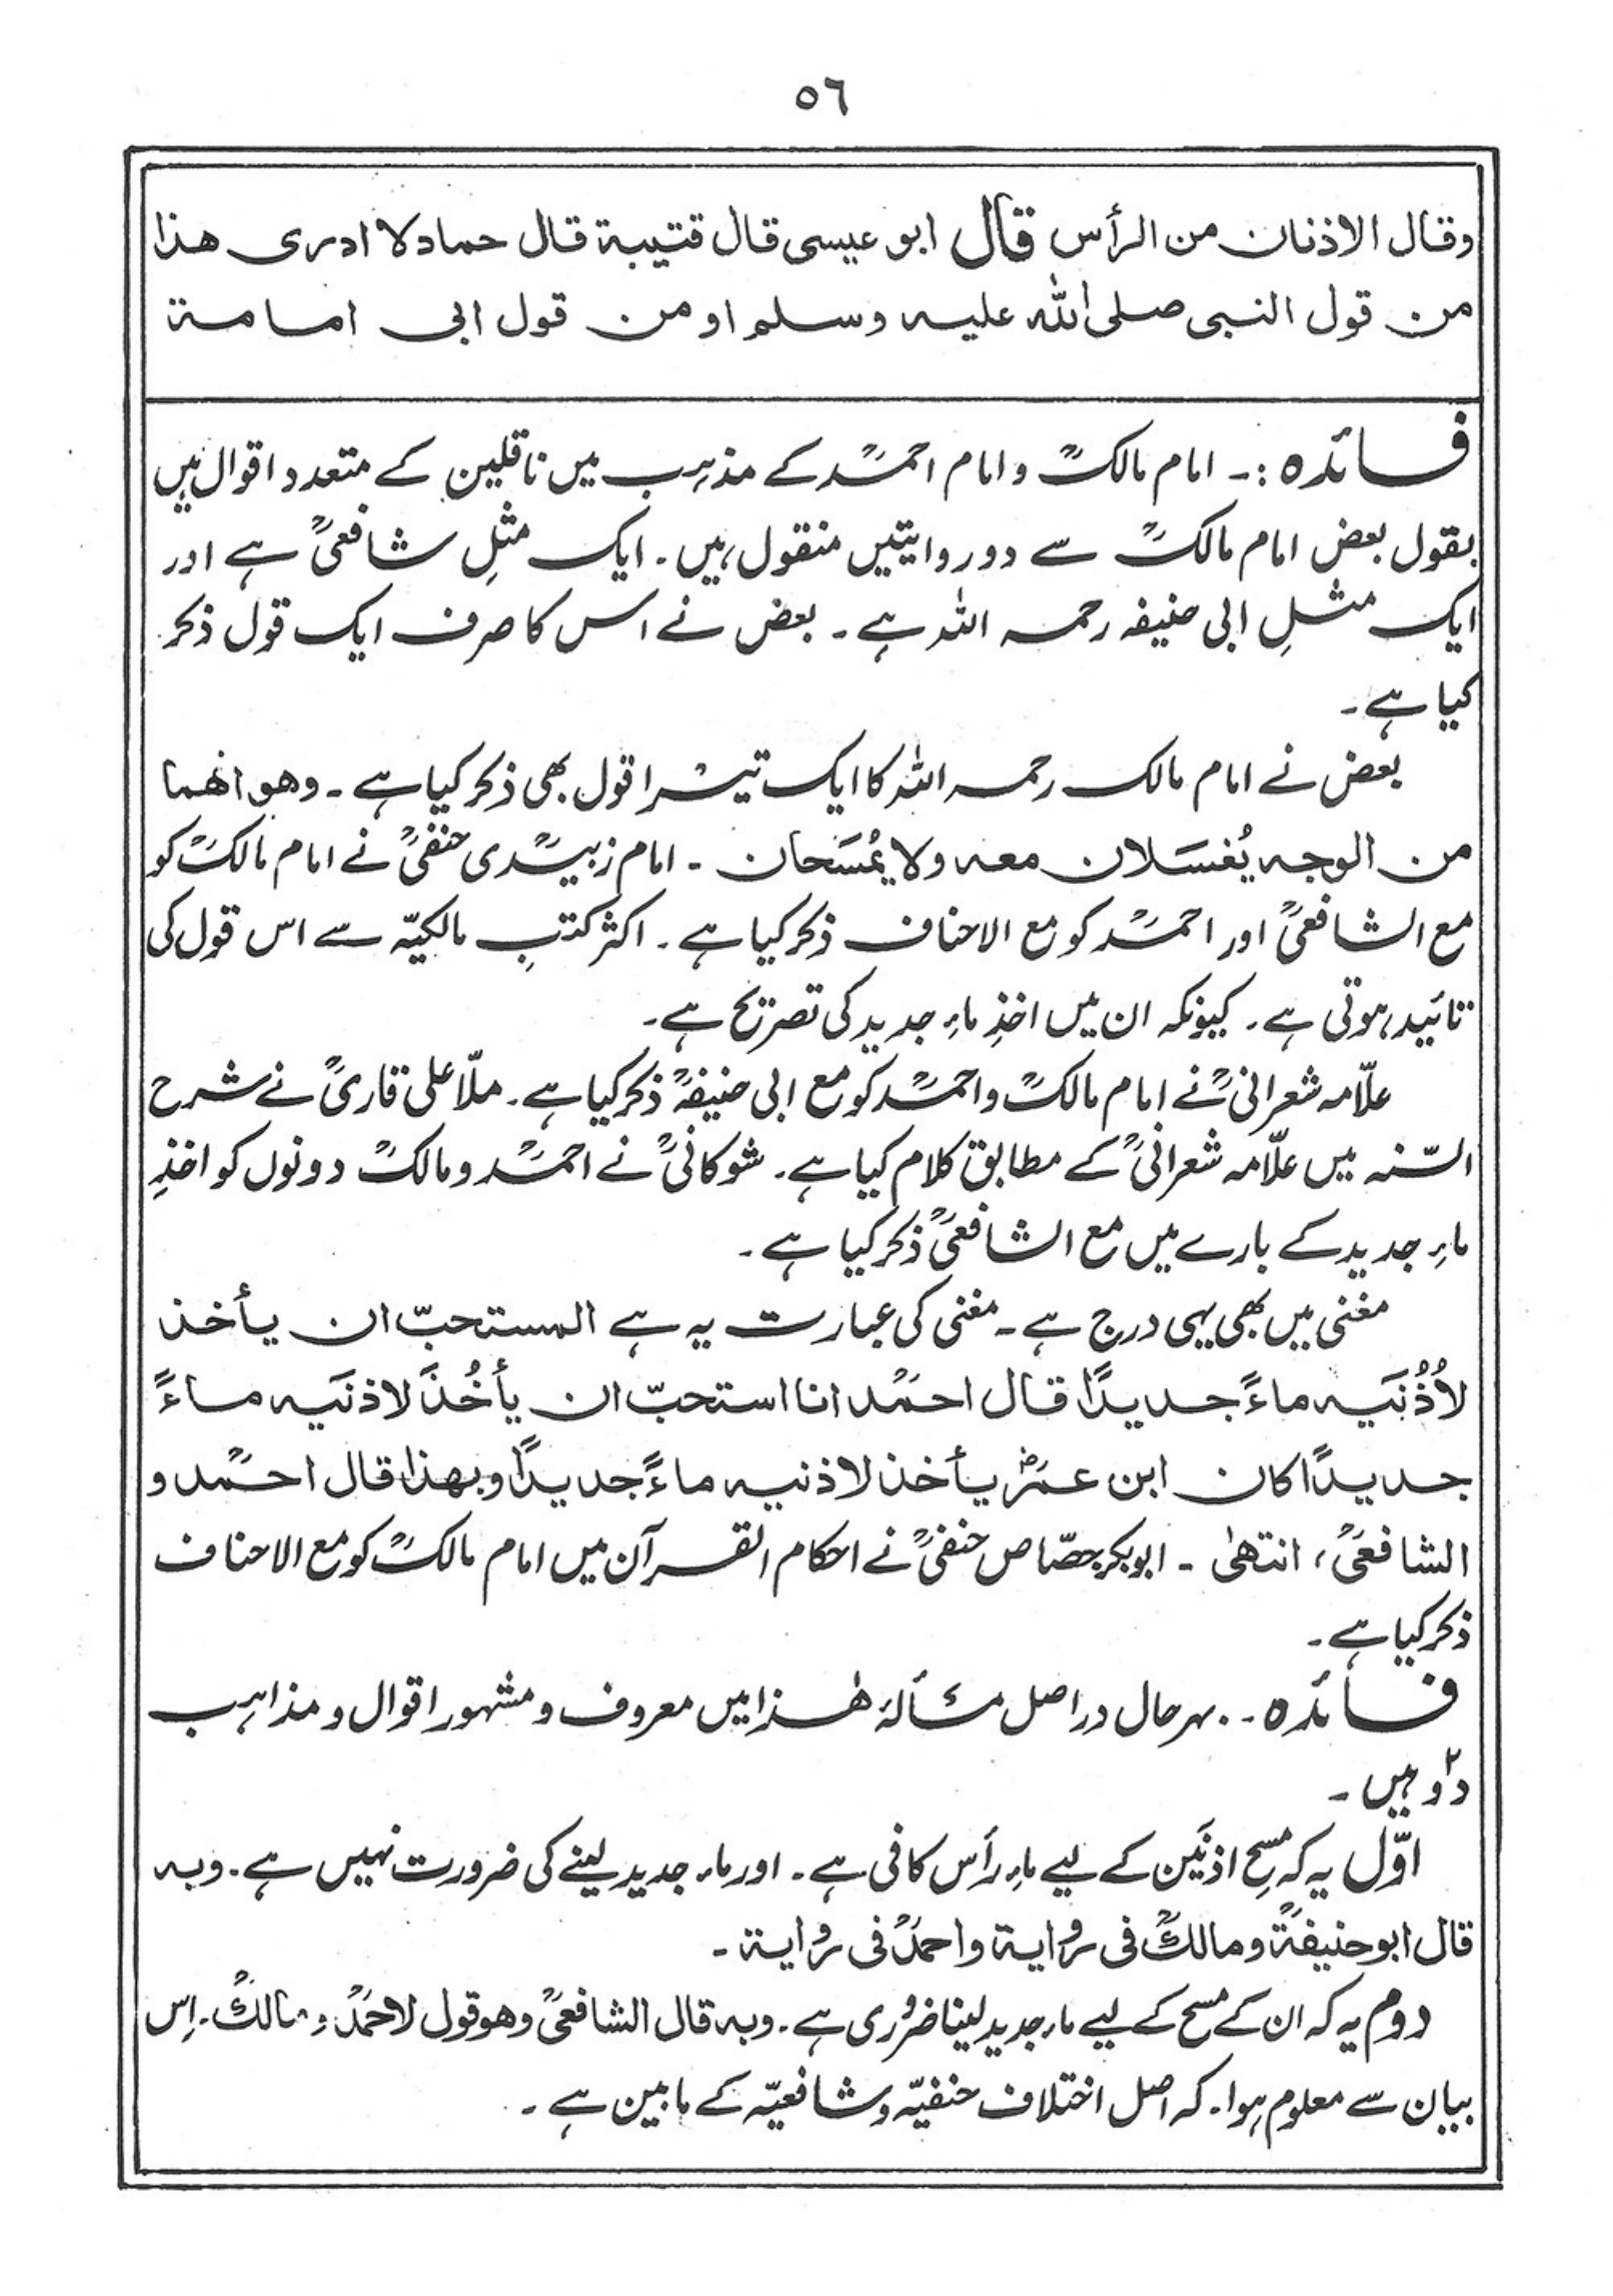 ٥٦
وقال الاذنان من الرأس قال ابو عيسى قال قتيبة قال حماد لا ادرى هذا
من قول النبى صلى الله عليه وسلم او من قول ابى امامة
فائدہ :۔ امام مالکؒ و امام احمدؒ کے مذہب میں ناقلین کے متعدد اقوال ہیں
بقول بعض امام مالکؒ سے دو روایتیں منقول ہیں۔ ایک مثلِ شافعیؒ ہے اور
ایک مثلِ ابی حنیفہ رحمہ اللہ ہے ۔ بعض نے اس کا صرف ایک قول ذکر
کیا ہے ۔
بعض نے امام مالک رحمہ اللہ کا ایک تیسرا قول بھی ذکر کیا ہے ۔ وهو انهما
من الوجه يُغسَلان معه ولا يُمسَحان ۔ امام زبیدی حنفیؒ نے امام مالکؒ کو
مع الشافعیؒ اور احمدؒ کو مع الاحناف ذکر کیا ہے ۔ اکثر کتبِ مالکیّہ سے اس قول کی
تائید ہوتی ہے ۔ کیونکہ ان میں اخذِ ماءِ جدید کی تصریح ہے۔
علّامہ شعرانیؒ نے امام مالکؒ و احمدؒ کو مع ابی حنیفہؒ ذکر کیا ہے ۔ ملّا علی قاریؒ نے شرح
السّنہ میں علّامہ شعرانیؒ کے مطابق کلام کیا ہے۔ شوکانیؒ نے احمدؒ و مالکؒ دونوں کو اخذِ
ماءِ جدید کے بارے میں مع الشافعیؒ ذکر کیا ہے ۔
مغنی میں بھی یہی درج ہے ۔ مغنی کی عبارت یہ ہے المستحبّ ان يأخذ
لأُذُنَيه ماءً جديدًا قال احمدؒ انا استحبّ ان يأخُذَ لاذنَيه ماءً
جديدًا كان ابن عمرؓ يأخذ لاذنيه ماءً جديدًا وبهذا قال احمدؒ و
الشافعیؒ، انتھیٰ ۔ ابوبکر جصّاص حنفیؒ نے احکام القرآن میں امام مالکؒ کو مع الاحناف
ذکر کیا ہے ۔
فائدہ ۔ بہرحال دراصل مسألۂ ھٰذا میں معروف و مشہور اقوال و مذاہب
دو۲ ہیں ۔
اوّل یہ کہ مسحِ اذنَین کے لیے ماءِ رأس کافی ہے ۔ اور ماء جدید لینے کی ضرورت نہیں ہے ۔ وبه
قال ابوحنيفةؒ ومالكؒ فی رواية واحمدؒ فی رواية ۔
دوم یہ کہ ان کے مسح کے لیے ماء جدید لینا ضروری ہے ۔ وبه قال الشافعیؒ وهو قول لاحمدؒ و مالكؒ ۔ اِس
بیان سے معلوم ہوا ۔ کہ اصل اختلاف حنفیّہ و شافعیّہ کے مابین ہے ۔